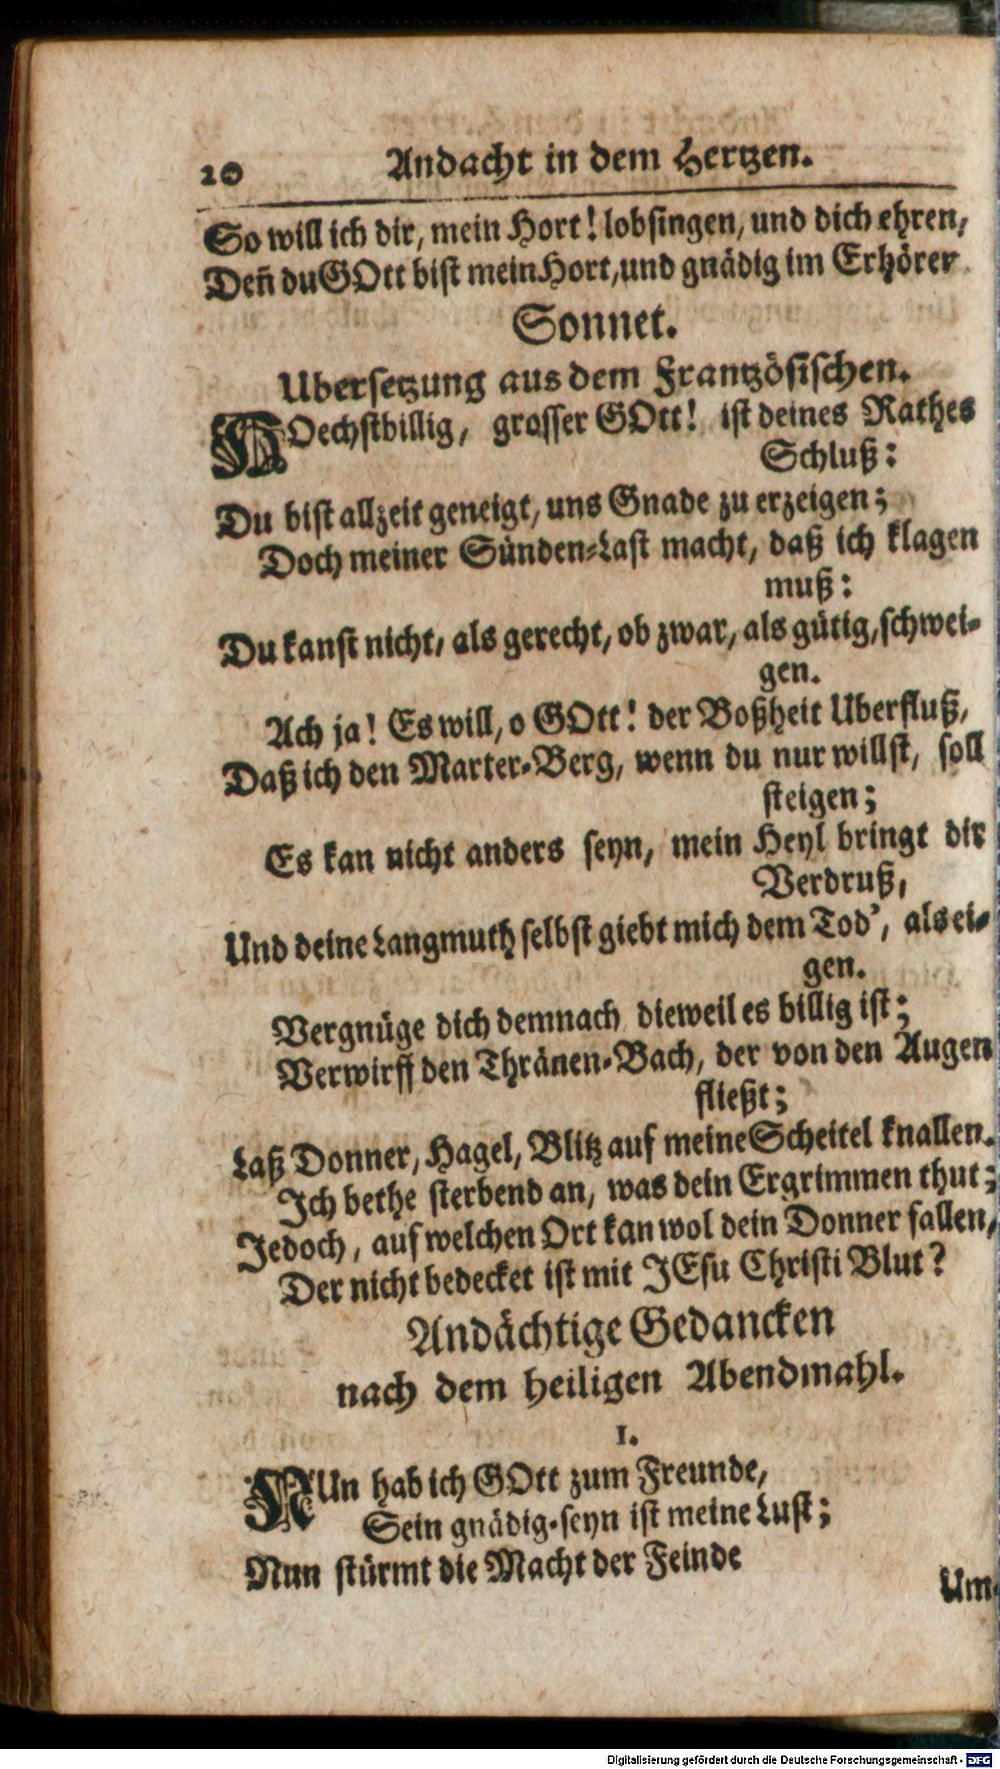 20 Andacht in dem Hertzen.
So will ich dir, mein Hort! lobsingen, und dich ehren,
Deñ du GOtt bist mein Hort, und gnädig im Erhörer
Sonnet.
Ubersetzung aus dem Frantzösischen.
HOechstbillig, grosser GOtt! ist deines Rathes
Schluß:
Du bist allzeit geneigt, uns Gnade zu erzeigen;
Doch meiner Sünden-Last macht, daß ich klagen
muß:
Du kanst nicht, als gerecht, ob zwar, als gütig, schwei-
gen.
Ach ja! Es will, o GOtt! der Boßheit Uberfluß,
Daß ich den Marter-Berg, wenn du nur willst, soll
steigen;
Es kan nicht anders seyn, mein Heyl bringt dir
Verdruß,
Und deine Langmuth selbst giebt mich dem Tod', als ei-
gen.
Vergnüge dich demnach dieweil es billig ist;
Verwirff den Thränen-Bach, der von den Augen
fließt;
Laß Donner, Hagel, Blitz auf meine Scheitel knallen.
Ich bethe sterbend an, was dein Ergrimmen thut;
Jedoch, auf welchen Ort kan wol dein Donner fallen,
Der nicht bedecket ist mit JEsu Christi Blut?
Andächtige Gedancken
nach dem heiligen Abendmahl.
1.
NUn hab ich GOtt zum Freunde,
Sein gnädig-seyn ist meine Lust;
Nun stürmt die Macht der Feinde
Um-
Digitalisierung gefördert durch die Deutsche Forschungsgemeinschaft - DFG